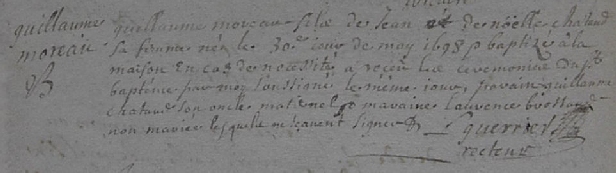 guillaume
moreau
B
guillaume moreau filz de Jean et de nöelle chataud
sa femme nén le 30e iour de may 1698 p baptizé à la
maison En cas de necessité a receu les ceremonies du st
baptême par moy soussigné le même iour, parain guillaume
chataud son oncle maternel et maraine laurence
non mariée lesquelle ne scavent signer
guerrier
recteur